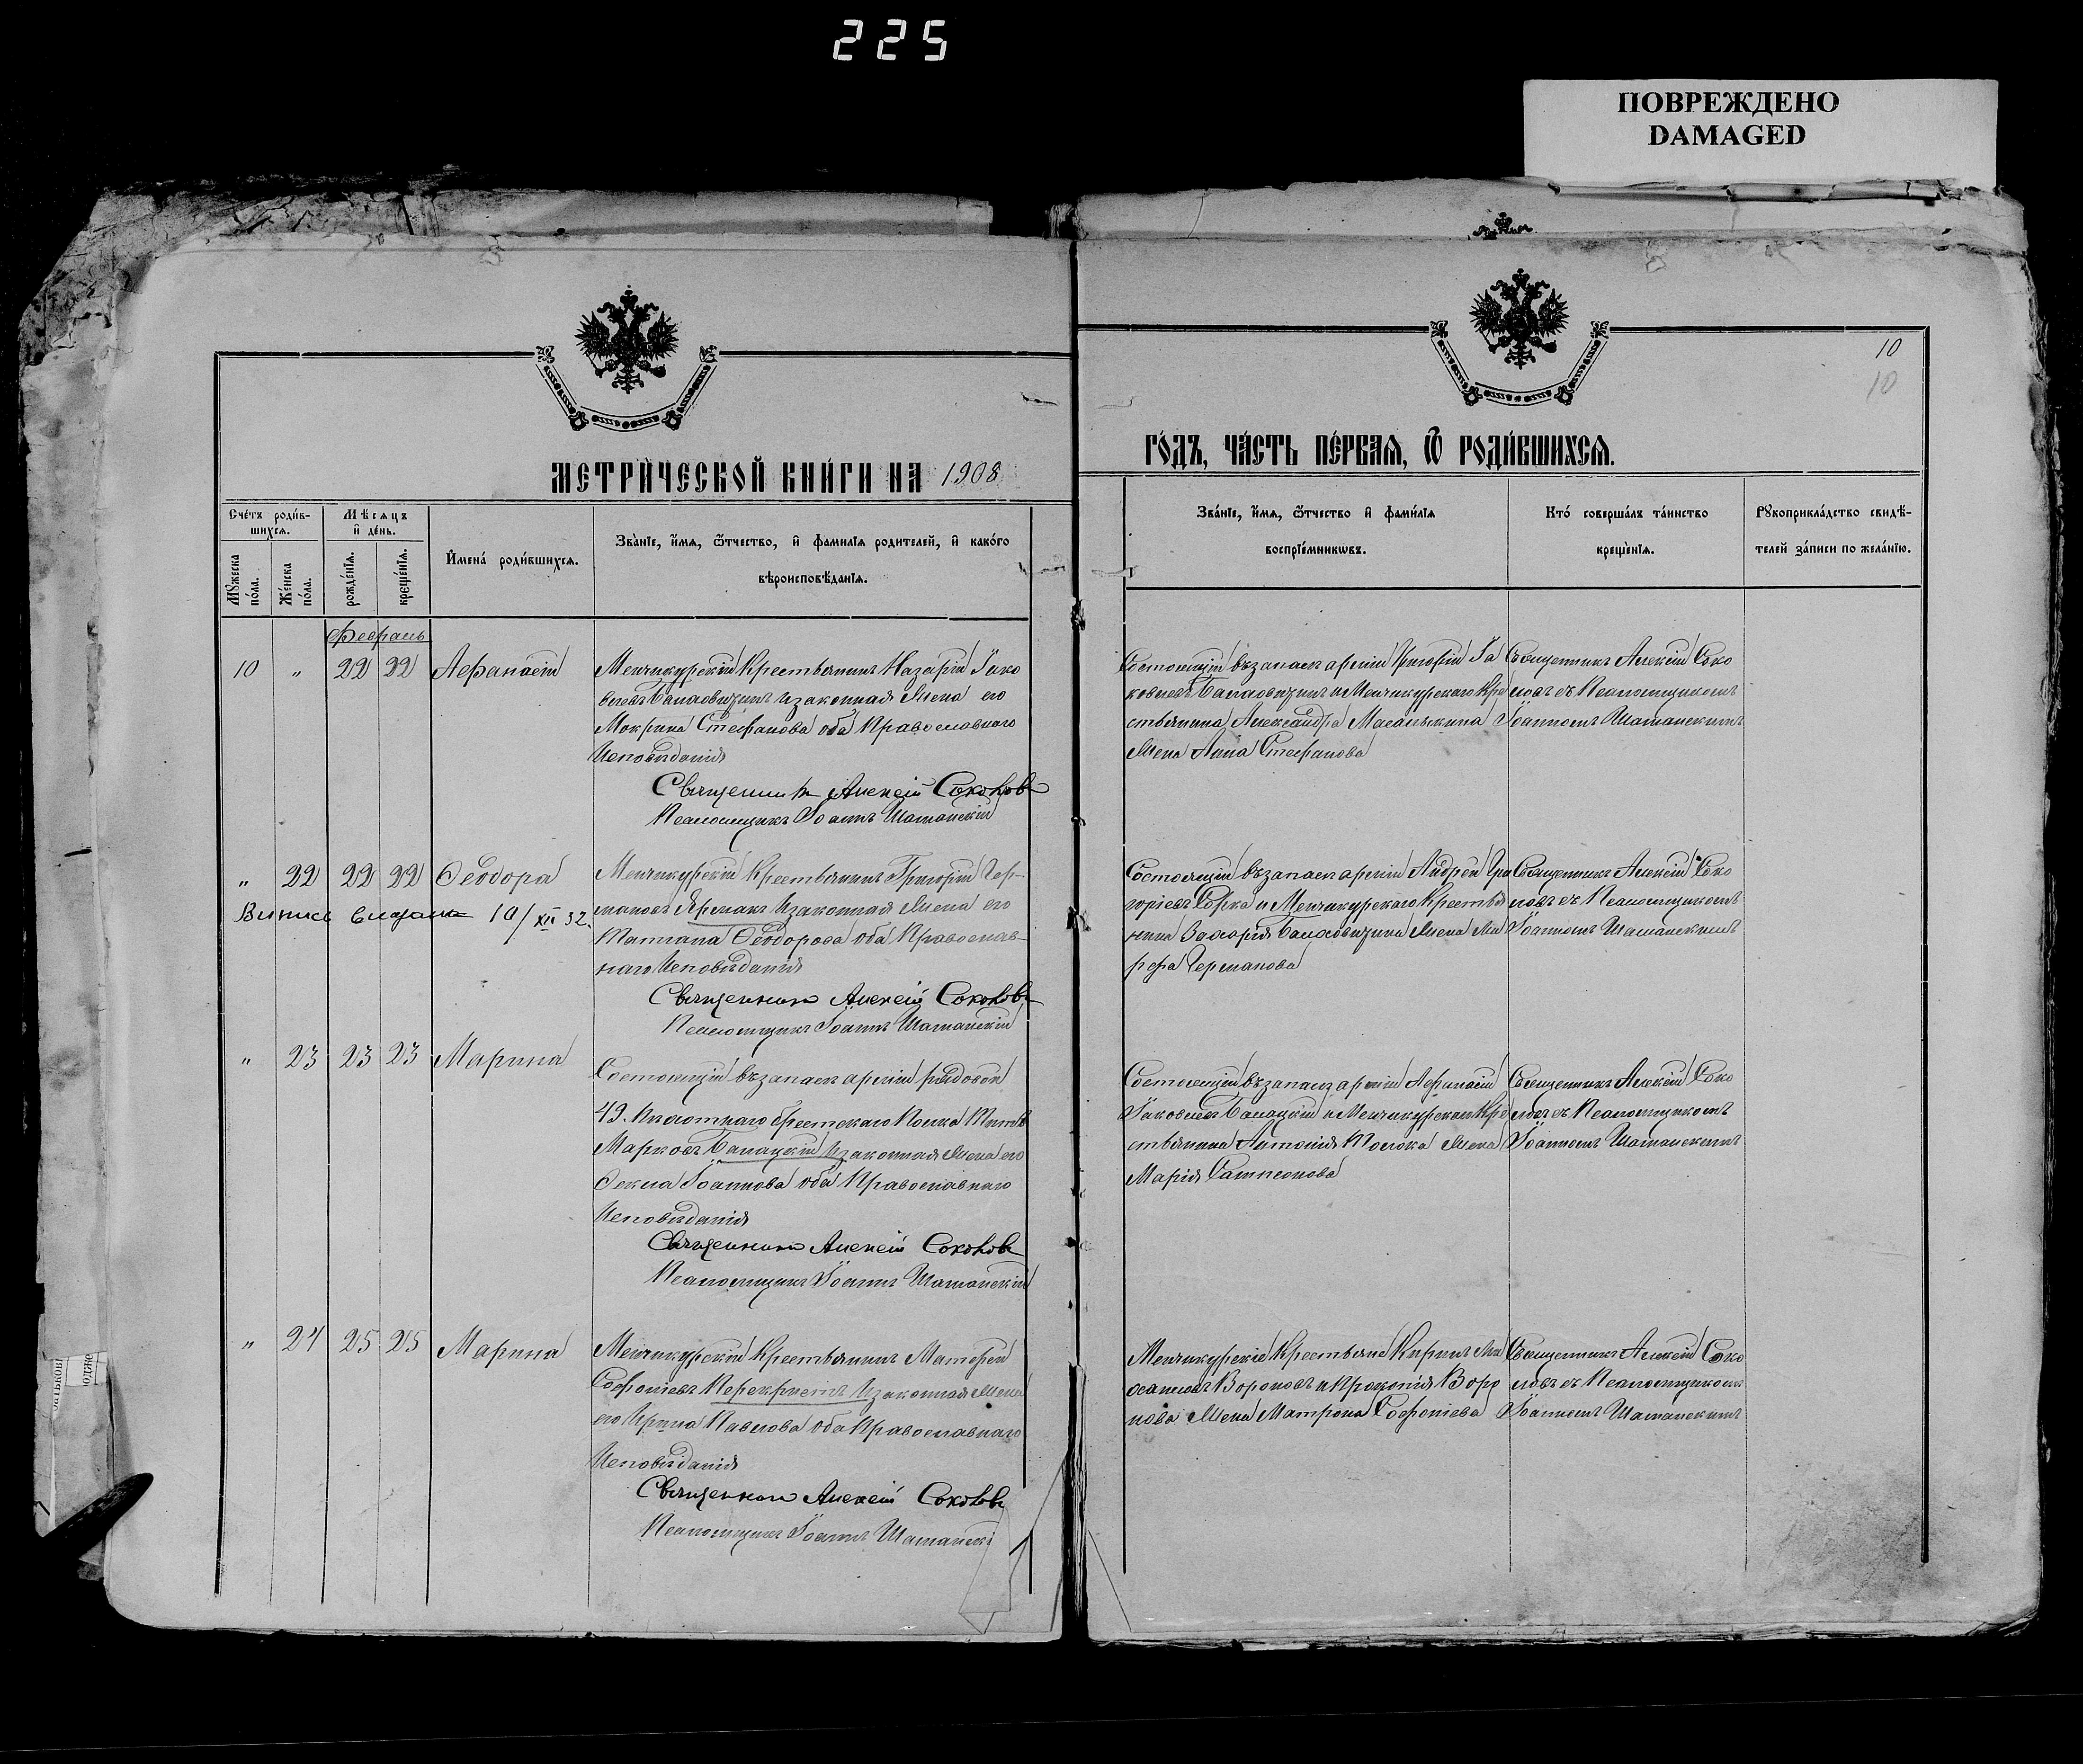 225
ПОВРЕЖДЕНО
DAMAGED
10
10
МЕТРИ́ЧЕСКОЙ КНИ́ГИ НА 1908
ГО́ДЪ, ЧА́СТЬ ПЕ́РВАѦ, Ѿ РОДИ́ВШИХСѦ.
Сче́тъ роди́в-
шихсѧ.
Мѣсѧцъ
и҆ де́нь.
Мꙋ́жеска
по́ла.
Же́нска
по́ла.
рожде́нїѧ.
креще́нїѧ.
И҆мена̀ роди́вшихсѧ.
Зва́нїе, и҆́мѧ, ѻ҆́тчество, и҆ фами́лїѧ родителей, и҆ како́гѡ
вѣроисповѣ́данїѧ.
Зва́нїе, и҆́мѧ, ѻ҆́тчество и҆ фами́лїѧ
воспрїе́мникѡвъ.
Кто̀ соверша́лъ та́инство
креще́нїѧ.
Рꙋкоприкла́дство свидѣ́-
телей за́писи по жела́нїю.
Февраль
10 " 22 22 Афанасій
Менчикурскій Крестьянинъ Назарій Іако
влевъ Балковизинъ и законная Жена его
Мокрина Стефанова оба Православного
Исповѣданія
Священникъ Алексій Соколовъ
Псаломщикъ Іоаннъ Шаманскій
Состоящій въ запасѣ арміи Григорій Іа
ковлевъ и Менчикурскаго Кре
стьянина Александра Жена Анна Стефанова
Священникъ Алексій Соко
ловъ съ Псаломщикомъ
Іоанномъ Шаманскимъ
" 22 22 22 Ѳеодора
Выпись выдана 10/XII 32.
Менчикурскій Крестьянинъ Григорій Гер-
мановъ Ярмакъ и законная Жена его
Татіана Ѳеодорова оба Православ-
наго Исповѣданія
Священникъ Алексій Соколовъ
Псаломщикъ Іоаннъ Шаманскій
Состоящій въ запасѣ арміи Андрей Гри
горіевъ и Менчикурскаго Крестья
нина Захарія Жена Ма
рфа Германова
Священникъ Алексій Соко
ловъ съ Псаломщикомъ
Іоанномъ Шаманскимъ
" 23 23 23 Марина
Состоящій въ запасѣ арміи рядовой
49. Пѣхотнаго Брестскаго Полка Титъ
Марковъ Балацкій и законная Жена его
Ѳекла Іоаннова оба Православнаго
Исповѣданія
Священникъ Алексій Соколовъ
Псаломщикъ Іоаннъ Шаманскій
Состоящій въ запасѣ арміи Афанасій
Іаковлевъ Балацкій и Менчикурскаго Кре
стьянина Антонія Жена
Марія Сампсонова
Священникъ Алексій Соко
ловъ съ Псаломщикомъ
Іоанномъ Шаманскимъ
" 24 25 25 Марина
Менчикурскій Крестьянинъ Матѳей
Софоніевъ Перекрестъ и законная Жена
его Ирина Павлова оба Православнаго
Исповѣданія
Священникъ Алексій Соколовъ
Псаломщикъ Іоаннъ Шаманскі
Менчикурскіе Крестьяне Кирилъ Ми
хаиловъ Вороновъ и Прокопія Воро
нова Жена Матрона Софоніева
Священникъ Алексій Соко
ловъ съ Псаломщикомъ
Іоанномъ Шаманскимъ